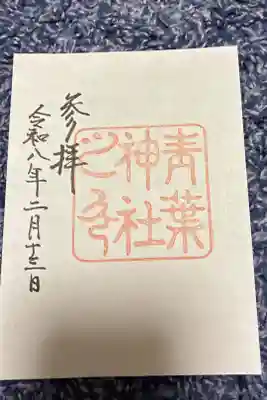 青葉
神社
参拝
令和八年二月十二日